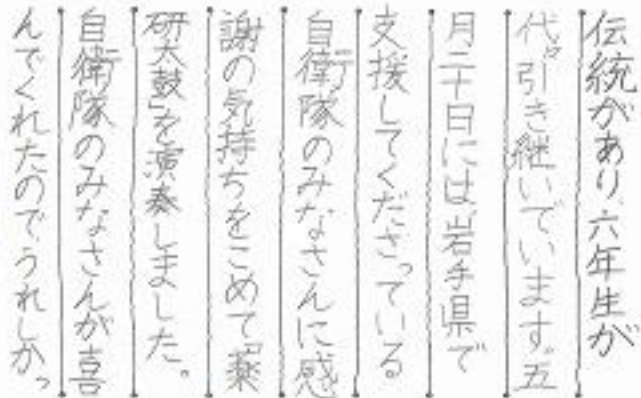 伝統があり、六年生が
代々引き継いでいます。五
月二十日には、岩手県で
支援してくださっている
自衛隊のみなさんに感
謝の気持ちをこめて「薬
研太鼓」を演奏しました。
自衛隊のみなさんが喜
んでくれたので、うれしかっ